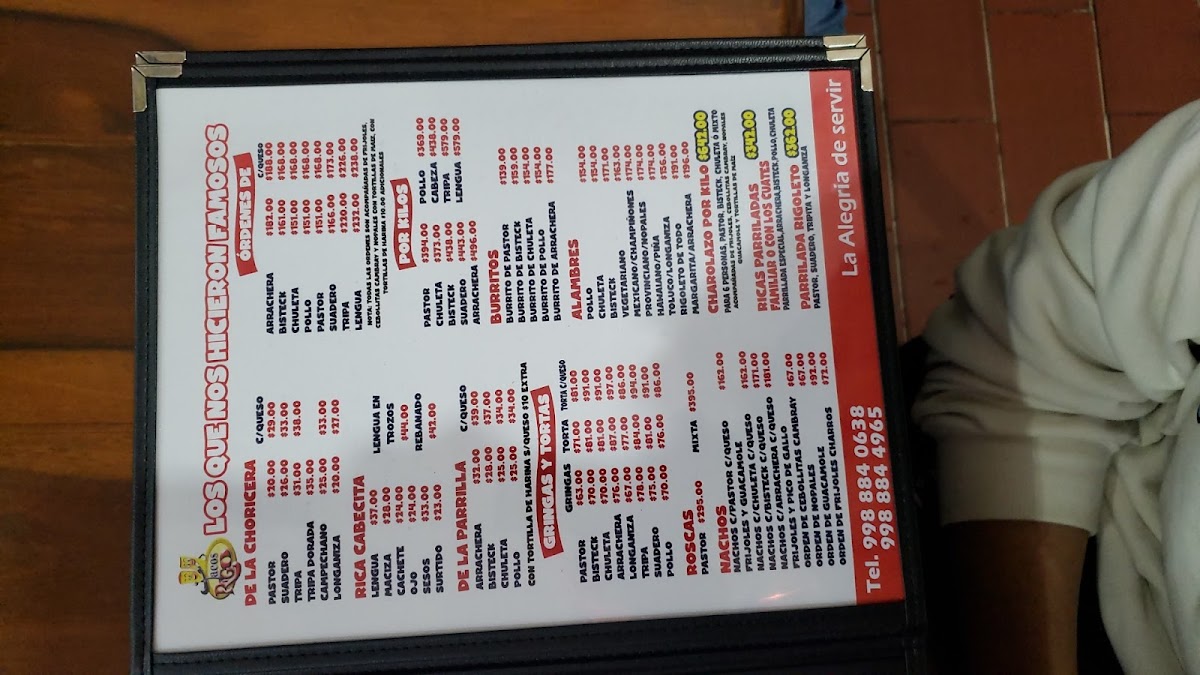 Tacos RIGO
LOS QUE NOS HICIERON FAMOSOS
DE LA CHORICERA C/QUESO
PASTOR $20.00 $29.00
SUADERO $26.00 $33.00
TRIPA $31.00 $38.00
TRIPA DORADA $35.00
CAMPECHANO $25.00 $33.00
LONGANIZA $20.00 $27.00
RICA CABECITA
LENGUA $37.00 LENGUA EN
MACIZA $28.00 TROZOS
CACHETE $24.00 $44.00
OJO $24.00 REBANADO
SESOS $33.00 $42.00
SURTIDO $23.00
DE LA PARRILLA C/QUESO
ARRACHERA $32.00 $39.00
BISTECK $28.00 $37.00
CHULETA $25.00 $34.00
POLLO $25.00 $34.00
CON TORTILLA DE HARINA S/QUESO $10 EXTRA
GRINGAS Y TORTAS
GRINGAS TORTA TORTA C/QUESO
PASTOR $63.00 $71.00 $81.00
BISTECK $70.00 $81.00 $91.00
CHULETA $70.00 $81.00 $91.00
ARRACHERA $76.00 $87.00 $97.00
LONGANIZA $67.00 $77.00 $86.00
TRIPA $78.00 $84.00 $94.00
SUADERO $75.00 $81.00 $91.00
POLLO $70.00 $76.00 $86.00
ROSCAS
PASTOR $295.00 MIXTA $395.00
NACHOS
NACHOS C/PASTOR C/QUESO $162.00
FRIJOLES Y GUACAMOLE
NACHOS C/CHULETA C/QUESO $162.00
NACHOS C/BISTECK C/QUESO $171.00
NACHOS C/ARRACHERA C/QUESO $181.00
FRIJOLES Y PICO DE GALLO
ORDEN DE CEBOLITAS CAMBRAY $67.00
ORDEN DE NOPALES $67.00
ORDEN DE GUACAMOLE $92.00
ORDEN DE FRIJOLES CHARROS $72.00
ÓRDENES DE
C/QUESO
ARRACHERA $182.00 $188.00
BISTECK $151.00 $168.00
CHULETA $151.00 $168.00
POLLO $151.00 $168.00
PASTOR $151.00 $168.00
SUADERO $166.00 $173.00
TRIPA $220.00 $226.00
LENGUA $232.00 $238.00
NOTA: TODAS LAS ORDENES SON ACAPAÑADAS DE FRIJOLES,
CEBOLLITAS CAMBRAY Y NOPALES CON TORTILLAS DE MAÍZ, CON
TORTILLAS DE HARINA $10.00 ADICIONALES
POR KILOS
PASTOR $394.00 POLLO $368.00
CHULETA $373.00 CABEZA $438.00
BISTECK $438.00 TRIPA $579.00
SUADERO $443.00 LENGUA $579.00
ARRACHERA $496.00
BURRITOS
BURRITO DE PASTOR $139.00
BURRITO DE BISTECK $159.00
BURRITO DE CHULETA $154.00
BURRITO DE POLLO $154.00
BURRITO DE ARRACHERA $177.00
ALAMBRES
POLLO $154.00
CHULETA $154.00
BISTECK $171.00
VEGETARIANO $153.00
MEXICANO/CHAMPIÑONES $174.00
PROVINCIANO/NOPALES $174.00
HAWAIANO/PIÑA $174.00
TOLUCO/LONGANIZA $156.00
RIGOLETO DE TODO $191.00
MARGARITA/ARRACHERA $196.00
CHAROLAZO POR KILO $642.00
PARA 6 PERSONAS, PASTOR, BISTECK, CHULETA Ó MIXTO
ACOMPAÑADAS DE FRIJOLES, CEBOLLITAS CAMBRAY, NOPALES
GUACAMOLE Y TORTILLAS DE MAÍZ
RICAS PARRILADAS
FAMILIAR O CON LOS CUATES $342.00
PARRILLADA ESPECIAL, ARRACHERA, BISTECK, POLLO, CHULETA
PARRILADA RIGOLETO $362.00
PASTOR, SUADERO, TRIPITA Y LONGANIZA
Tel. 998 884 0638
998 884 4965
La Alegría de servir